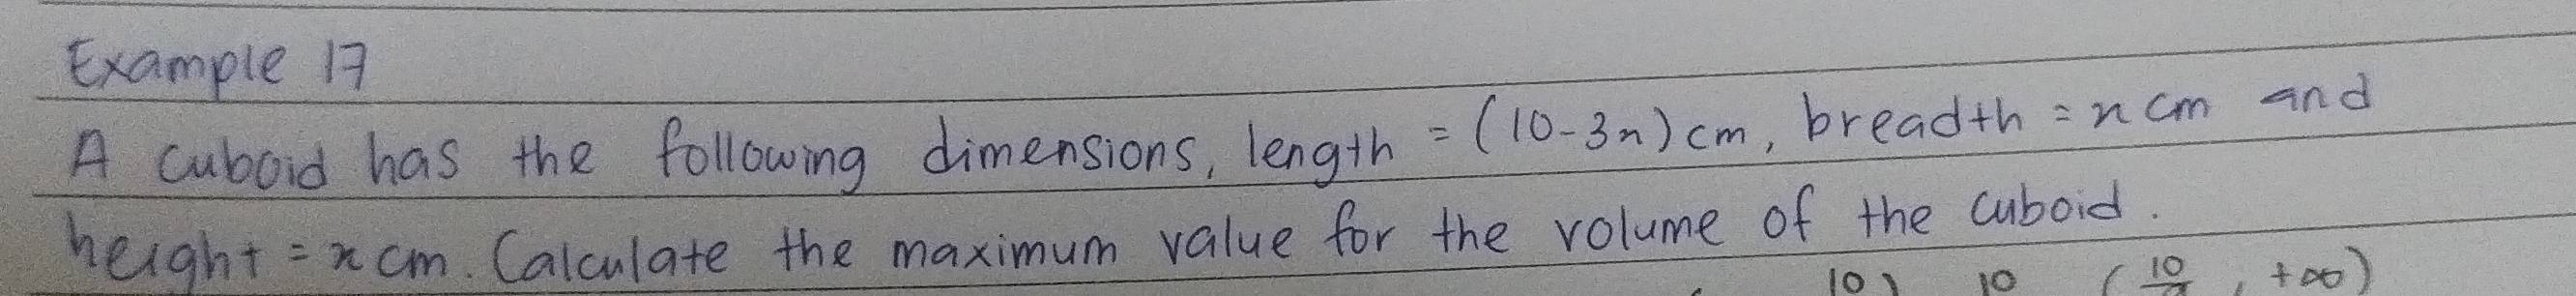 Example 17
A cuboid has the following dimensions, length = (10-3x)cm, breadth = x cm and
height = x cm. Calculate the maximum value for the volume of the cuboid.
10) 10 ( 10 , +∞)